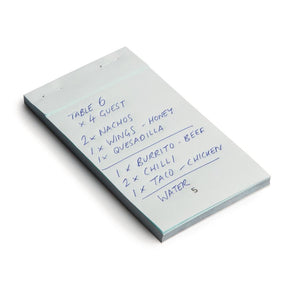 TABLE 6
x 4 GUEST
2 x NACHOS
1 x WINGS - HONEY
1 x QUESADILLA
1 x BURRITO - BEEF
2 x CHILLI
1 x TACO - CHICKEN
WATER
5